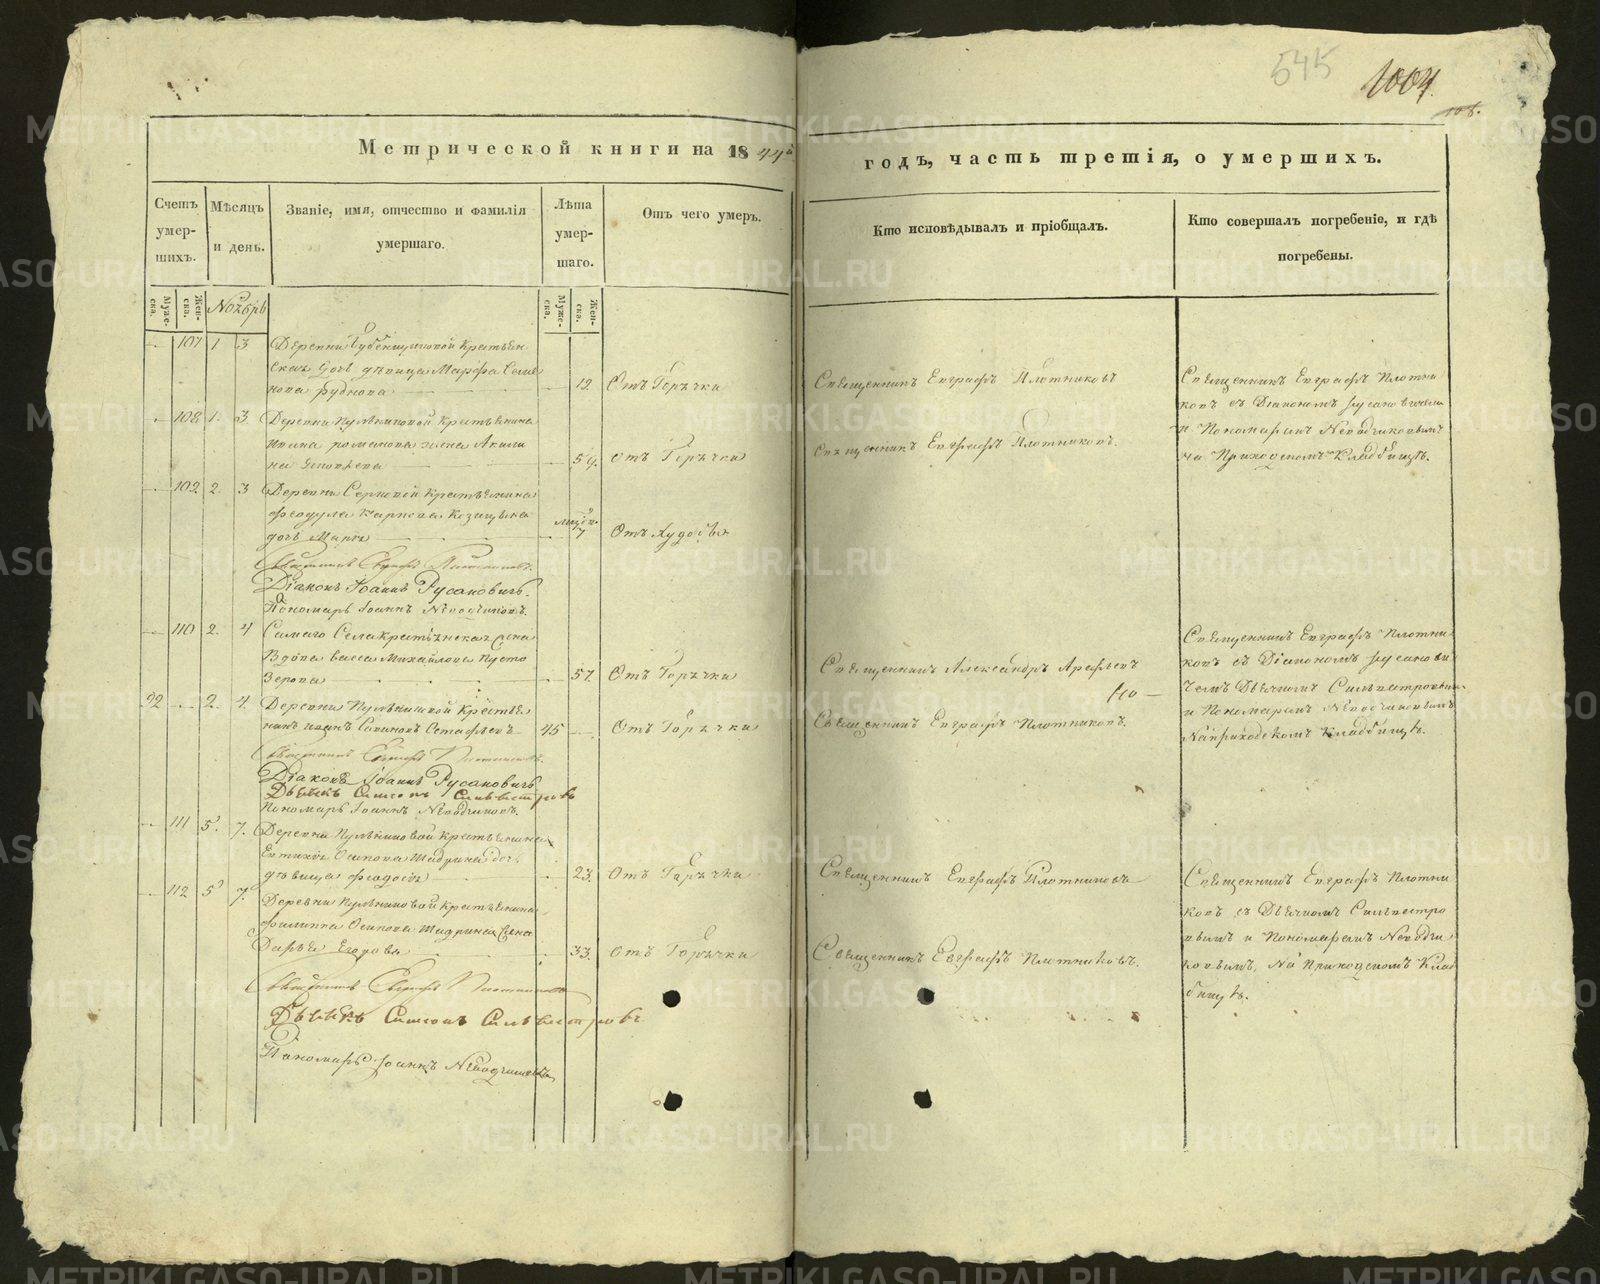 545
1004.
Метрической книги на 1844й
годъ, часть третія, о умершихъ.
Счетъ умер-шихъ.
Мѣсяцъ и день.
Званіе, имя, отчество и фамилія умершаго.
Лѣта умер-шаго.
Отъ чего умеръ.
Кто исповѣдывалъ и пріобщалъ.
Кто совершалъ погребеніе, и гдѣ погребены.
Муже-ска.
Жен-ска.
Ноябрь
Муже-ска.
Жен-ска.
107 1 3 Деревни Крестьян
ская дочь дѣвица Марфа Семе
нова Руднова 12 Отъ Горячки
Священникъ Евграфъ Плотниковъ
Священникъ Евграфъ Плотни
ковъ съ Діакономъ Русановичемъ
и Пономаремъ Неводчиковымъ
на Приходскомъ Кладбищѣ.
108 1. 3 Деревни Крестьянина
Ивана Романова жена Акили
на 59. Отъ Горячки
Священникъ Евграфъ Плотниковъ.
109 2. 3 Деревни Крестьянина
Федула Карпова
дочь Марѳа Отъ Худобы
Священникъ Евграфъ Плотниковъ.
Діаконъ Іоаннъ Русановичъ.
Пономарь Іоаннъ Неводчиковъ.
110 2. 4 Самаго Села Крестьянская жена
Вдова Васса Михайлова Пусто
зерова 57. Отъ Горячки
Священникъ Александръ Арефьевъ
Священникъ Евграфъ Плотни
ковъ съ Діакономъ Русанови
чемъ Дьячкомъ Сильвестровымъ
и Пономаремъ Неводчиковымъ
На приходскомъ Кладбищѣ.
92 2. 4. Деревни Крестья
нинъ 45 Отъ Горячки
Священникъ Евграфъ Плотниковъ.
Священникъ Евграфъ Плотниковъ.
Діаконъ Іоаннъ Русановичъ
Дьячекъ Симеонъ Сильвестровъ
Пономарь Іоаннъ Неводчиковъ.
111 5. 7. Деревни Крестьянина
Евтихія Осипова Шадрина дочь
дѣвица Федосья 23. Отъ Горячки
Священникъ Евграфъ Плотниковъ
Священникъ Евграфъ Плотни
ковъ съ Дьячкомъ Сильвестро
вымъ и Пономаремъ Неводчи
ковымъ, На Приходскомъ Клад
бищѣ.
112 5 7. Деревни Крестьянина
Филиппа Осипова Шадрина жена
Дарья Егорова 33. Отъ Горячки
Священникъ Евграфъ Плотниковъ.
Священникъ Евграфъ Плотниковъ
Дьячекъ Симеонъ Сильвестровъ
Пономарь Іоаннъ Неводчиковъ
METRIKI.GASO-URAL.RU